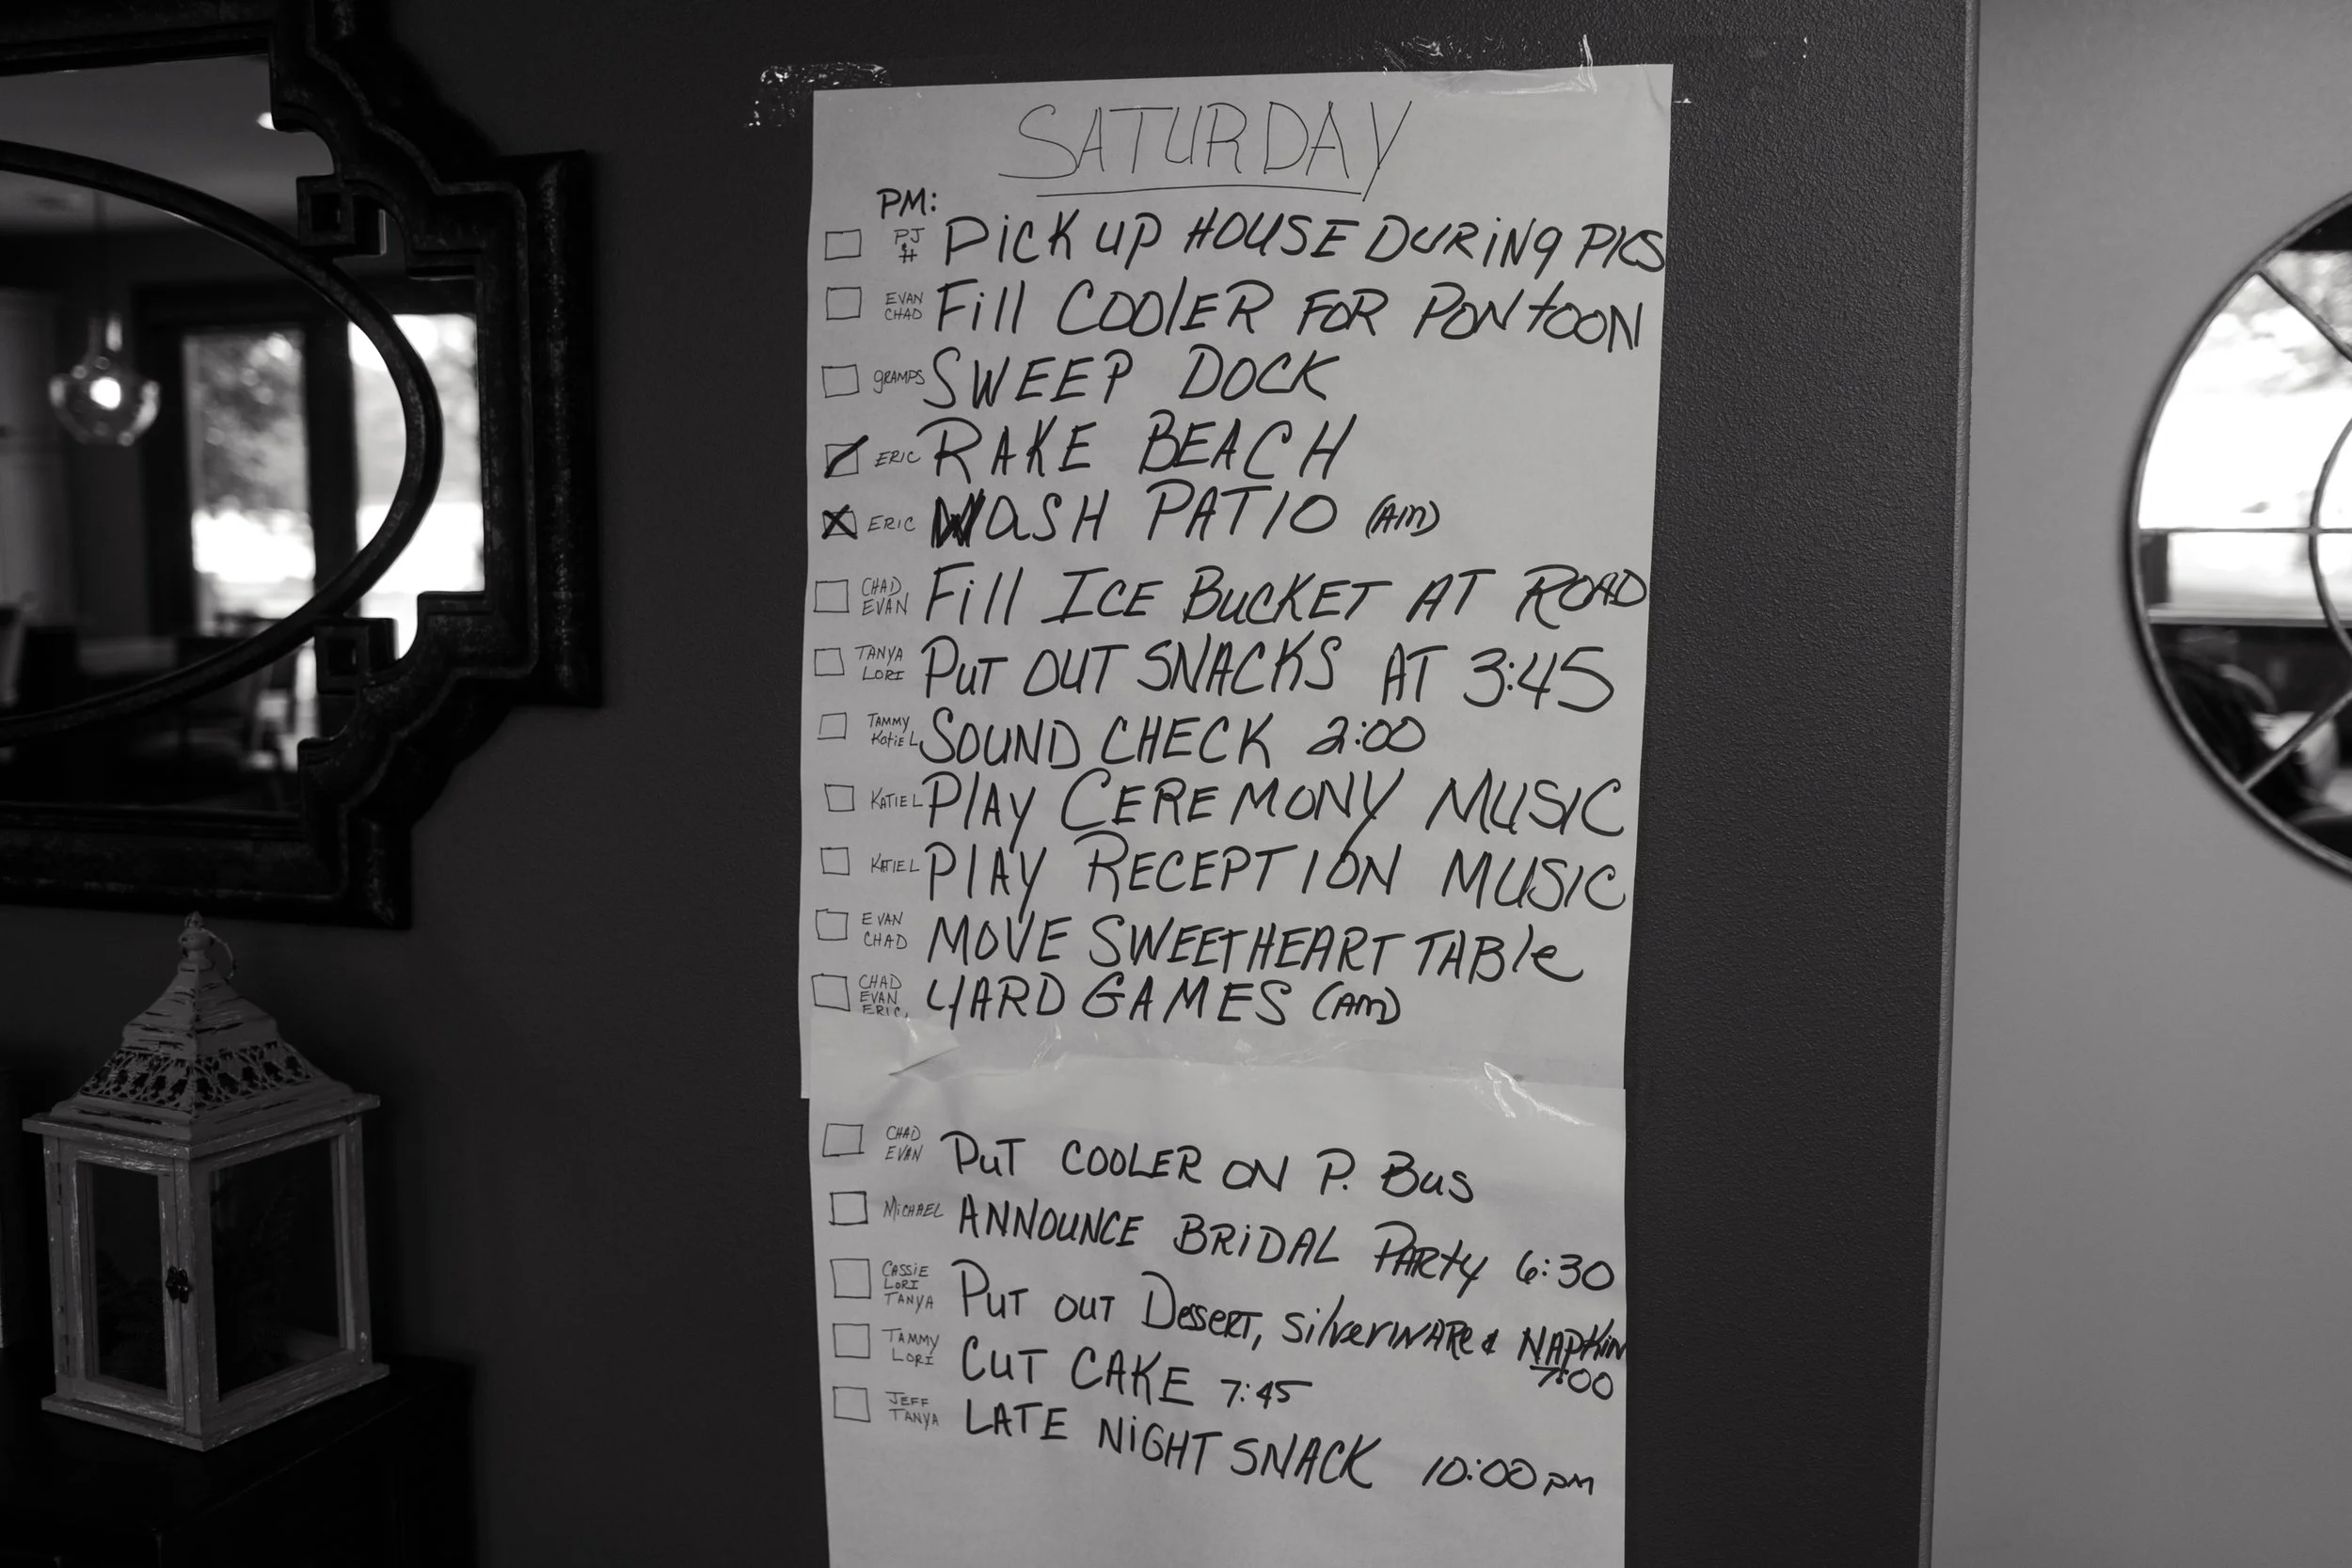 SATURDAY
PM:
PJ & # PiCK UP HOUSE DURiNg PICS
EVAN CHAD Fill COOlER FOR PONtOON
gRAMPS SWEEP DOCK
ERIC RAKE BEACH
ERIC WaSH PATIO (AM)
CHAD EVAN Fill ICE BuCKET AT ROAD
TANYA LORI PuT OUT SNACKS AT 3:45
TAMMY KatiE L SOUND CHECK 2:00
KATIE L PlAY CEREMONY MUSIC
KATIE L PlAY RECEPTION MUSIC
EVAN CHAD MOVE SWEETHEART TABle
CHAD EVAN ERIC YARD GAMES (AM)
CHAD EVAN PuT COOLER ON P. Bus
MiCHAEL ANNOUNCE BRiDAL PARty 6:30
CASSiE LORI TANYA PuT OuT DessERT, SilverWARe & NAPKiN
7:00
TAMMY LORI CuT CAKE 7:45
JEFF TANYA LATE NiGHT SNACK 10:00 PM